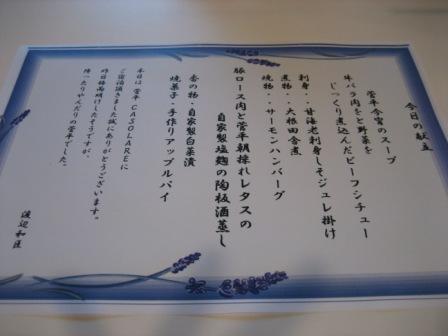 今日の献立
菅平今宵のスープ
牛バラ肉をと野菜を
じっくり煮込んだビーフシチュー
刺身・・甘海老刺身しそジュレ掛け
煮物・・大根田舎煮
焼物・・サーモンハンバーグ
豚ロース肉と菅平朝採れレタスの
自家製塩麹の陶板酒蒸し
香の物・自家製白菜漬
焼菓子・手作りアップルパイ
本日は菅平CASOLAREに
ご宿泊頂きまして誠にありがとうございます。
昨日梅雨明けしたそうですが、
降ったりやんだりの菅平でした。
渡辺和臣